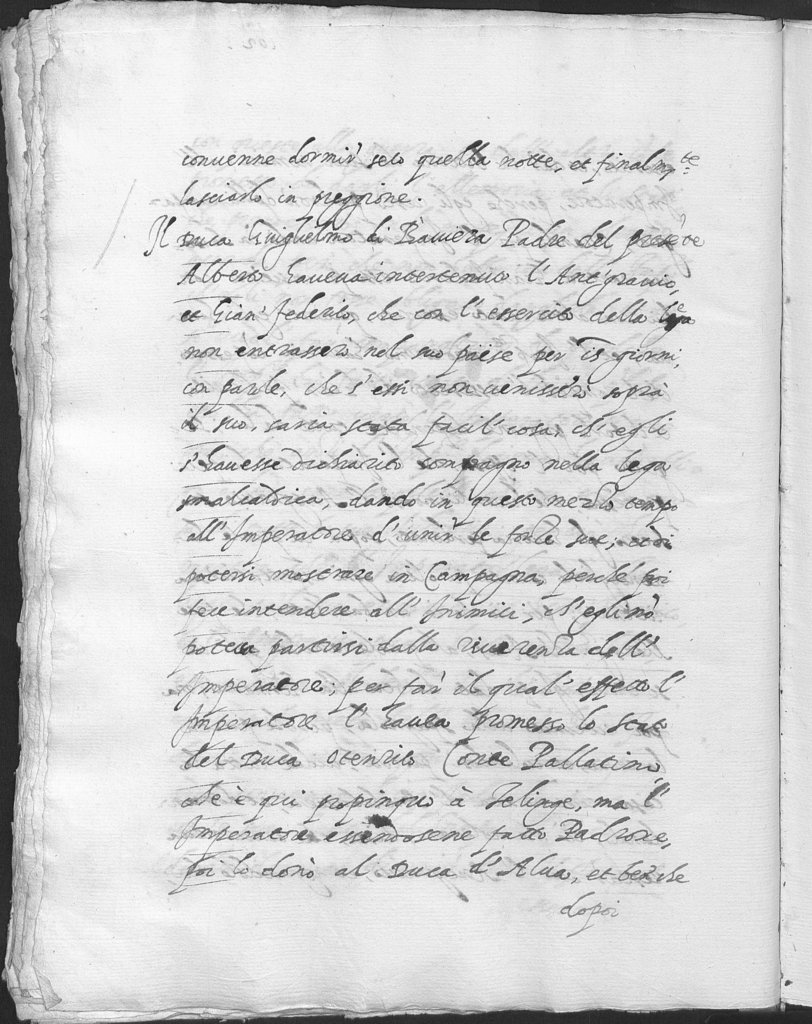 conuenne dormir seco quella notte, et finalmte
lasciarlo in preggione.
Il Duca Guiglielmo di Bauiera Padre del presēte
Alberto haueua intertenuto l'Antgrauio,
et Gian' federico, che con l'essercito della lega
non entrasserò nel suo paese per 15 giorni,
con parole, che s'essi non uenisserò soprà
il suo, saria stata facil' cosa, ch' egli
s'hauesse dichiarito compagno nella lega
smalcaldica, dando in questo mezzo tempo
all' Imperatore d' unir le forze sue, et di
potersi mostrare in Campagna, perché poi
fece intendere all' Inimici, ch' egli nō
poteua partirsi dalla riuerenza dell'
Imperatore; per far il qual' effetto l'
Imperatore l' hauea promesso lo stato
del Duca Otenrico Conte Pallatino
che è qui propinquo à Telinge, ma l'
Imperatore essendosene fatto Padrone,
poi lo donò al Duca d' Alua, et ben che
dopoi